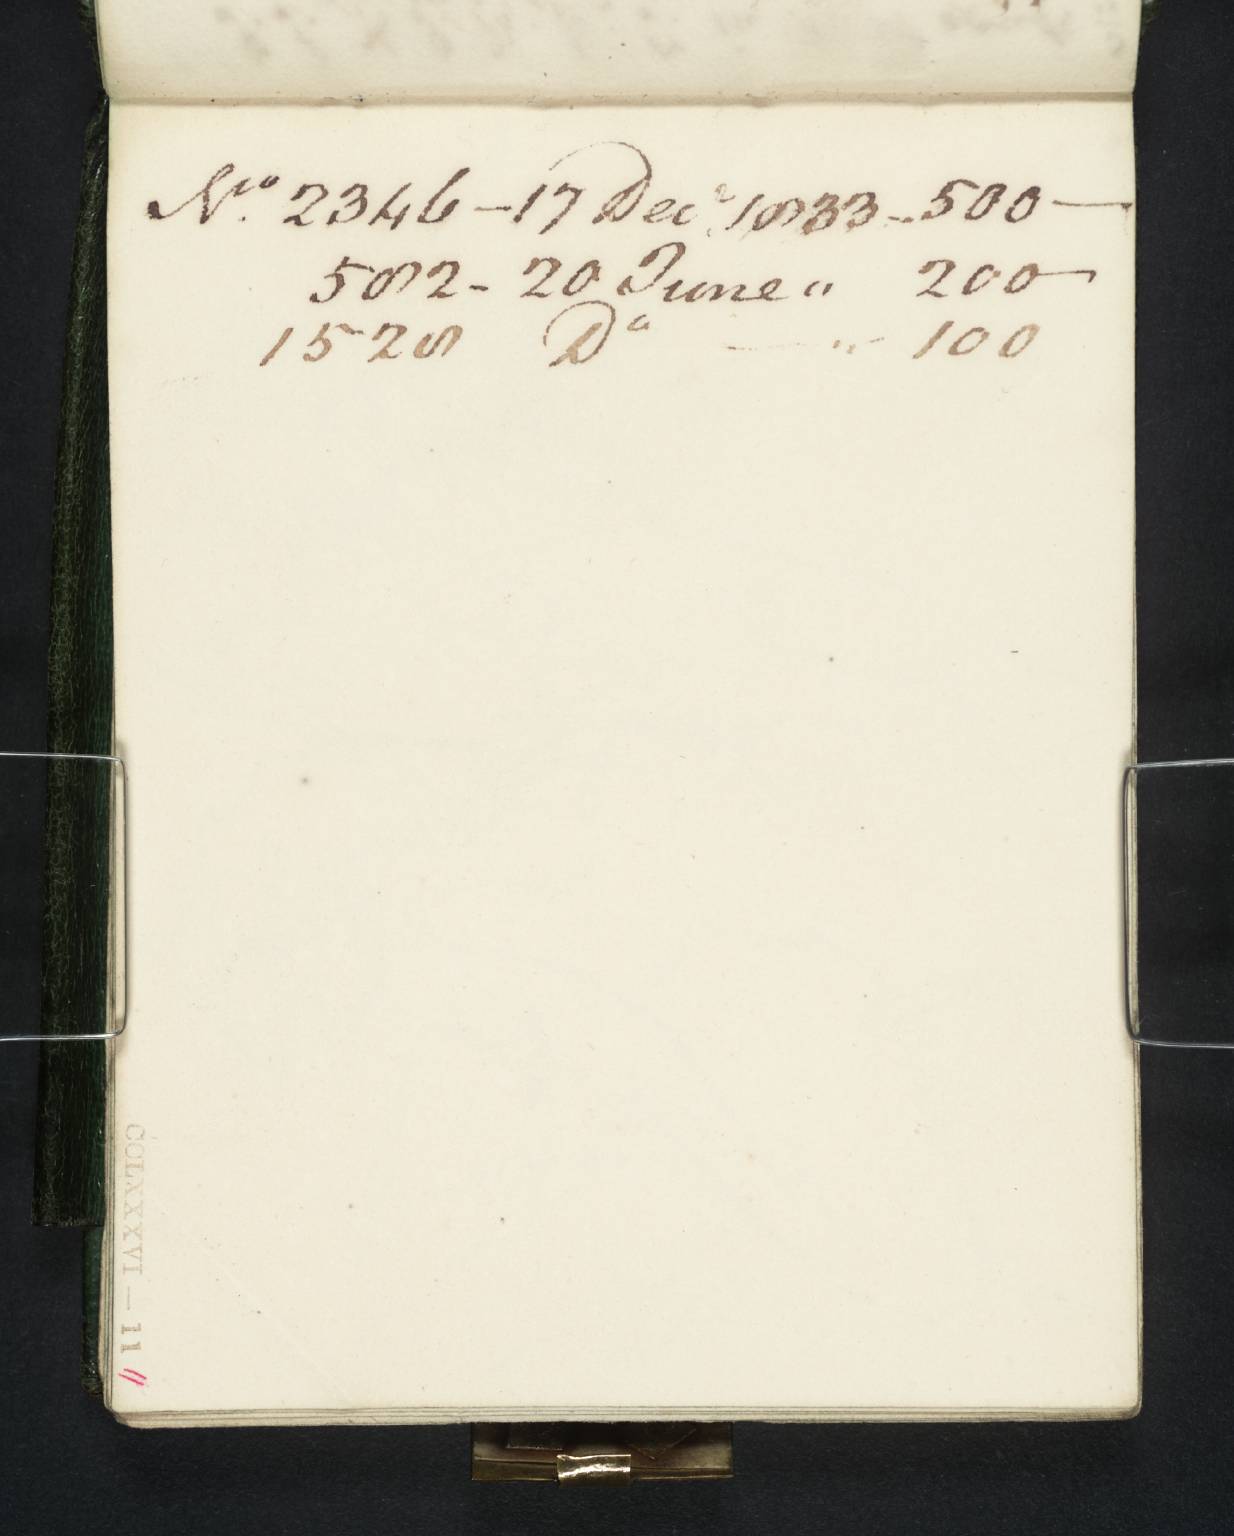 No. 2346 – 17 Decr 1833 – 500 —
582 – 20 June " 200 —
1528 Do — " 100
CCLXXXVI — 11
11